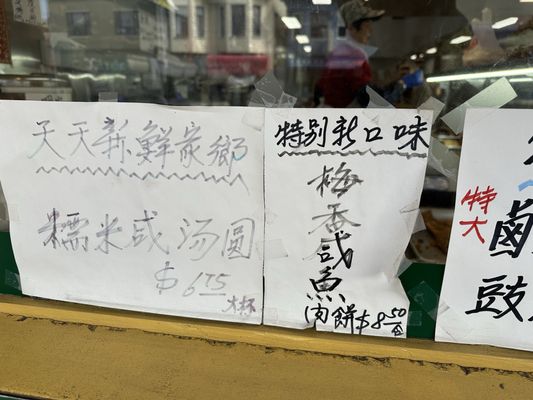 天天新鮮家鄉
糯米咸汤圆
$6.75
大杯
特别新口味
梅香咸魚
肉餅$8.50
特大
鹵
豉